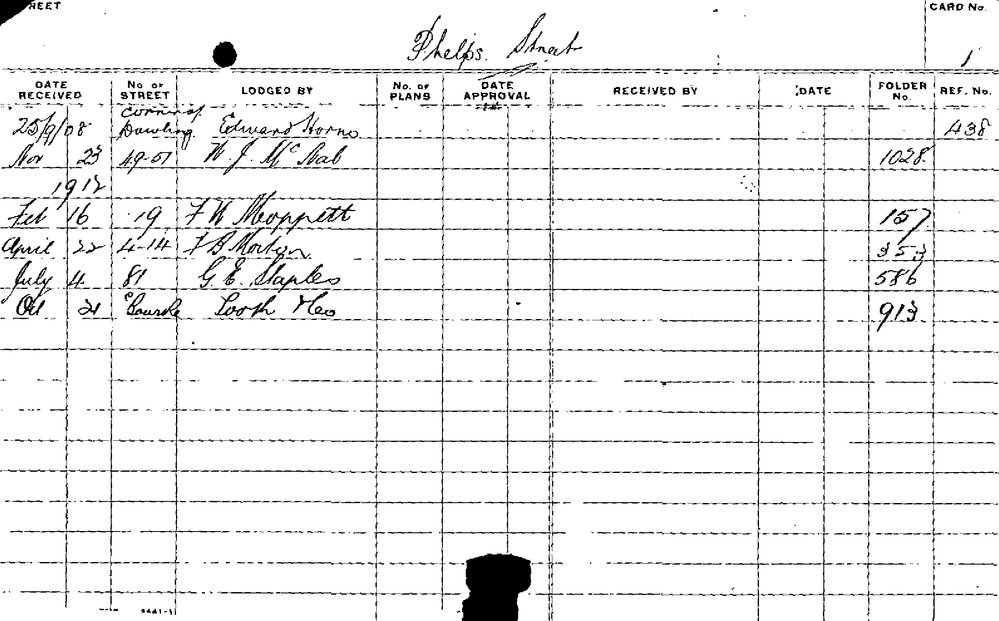 REET
CARD No.
Phelps Street
1
DATE RECEIVED No. OF STREET LODGED BY No. OF PLANS DATE APPROVAL RECEIVED BY DATE FOLDER No. REF. No.
25/9/08 Corner of Dowling Edward Horne 438
Nov 23 49-51 W. J. McNab 1028
1912
Feb 16 19 F W Moppett 157
April 22 4-14 F B Morton 353
July 4 81 G. E. Staples 586
Oct 21 Bourke Tooth &Co 913